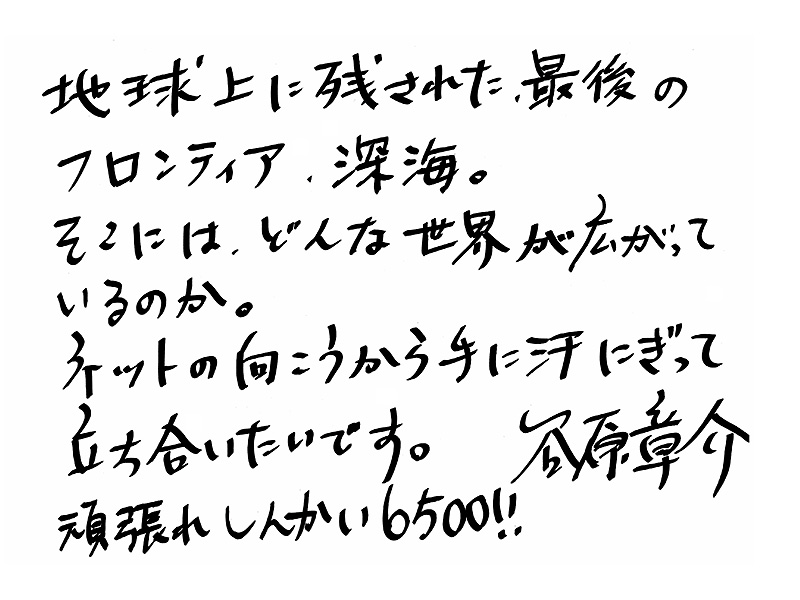 地球上に残された、最後の
フロンティア、深海。
そこには、どんな世界が広がって
いるのか。
ネットの向こうから手に汗にぎって
立ち合いたいです。 谷原章介
頑張れしんかい6500!!